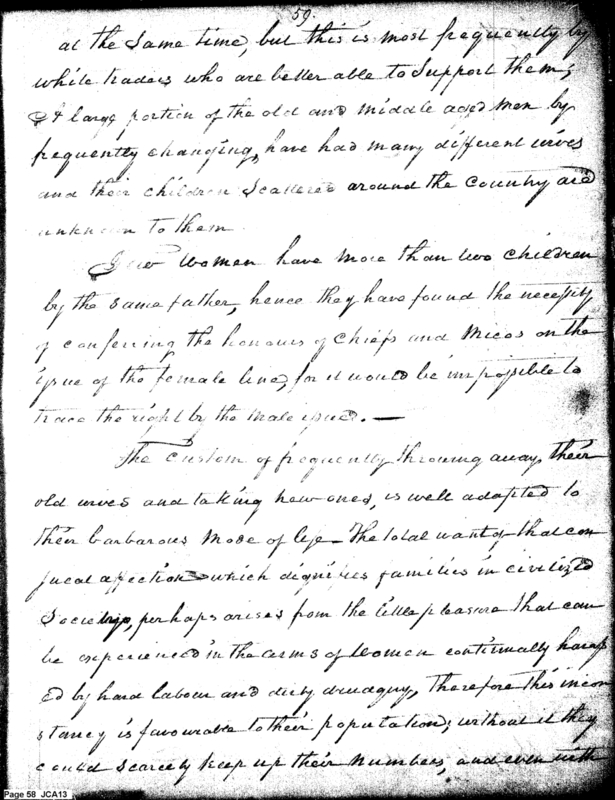 59.
at the Same time, but this is most frequently by
white traders who are better able to Support them;
A large portion of the old and middle aged men by
frequently changing, have had many different wives
and their children Scattered around the Country are
unknown to them
Few Women have more than two Children
by the same father, hence they have found the necessity
of conferring the honours of Chiefs and Micos on the
issue of the female line, for it would be impossible to
trace the right by the Male issue. —
The Custom of frequently throwing away their
old wives and taking new ones, is well adapted to
their barbarous Mode of life – The total want of that con
jucal affection which dignifies families in civilized
Society, perhaps arises from the little pleasure that can
be experienced in the arms of Women continually harass
ed by hard labour and dirty drudgery, therefore this incon
stancy is favourable to their population; without it they
could scarcely keep up their Numbers, and even with
Page 58 JCA13